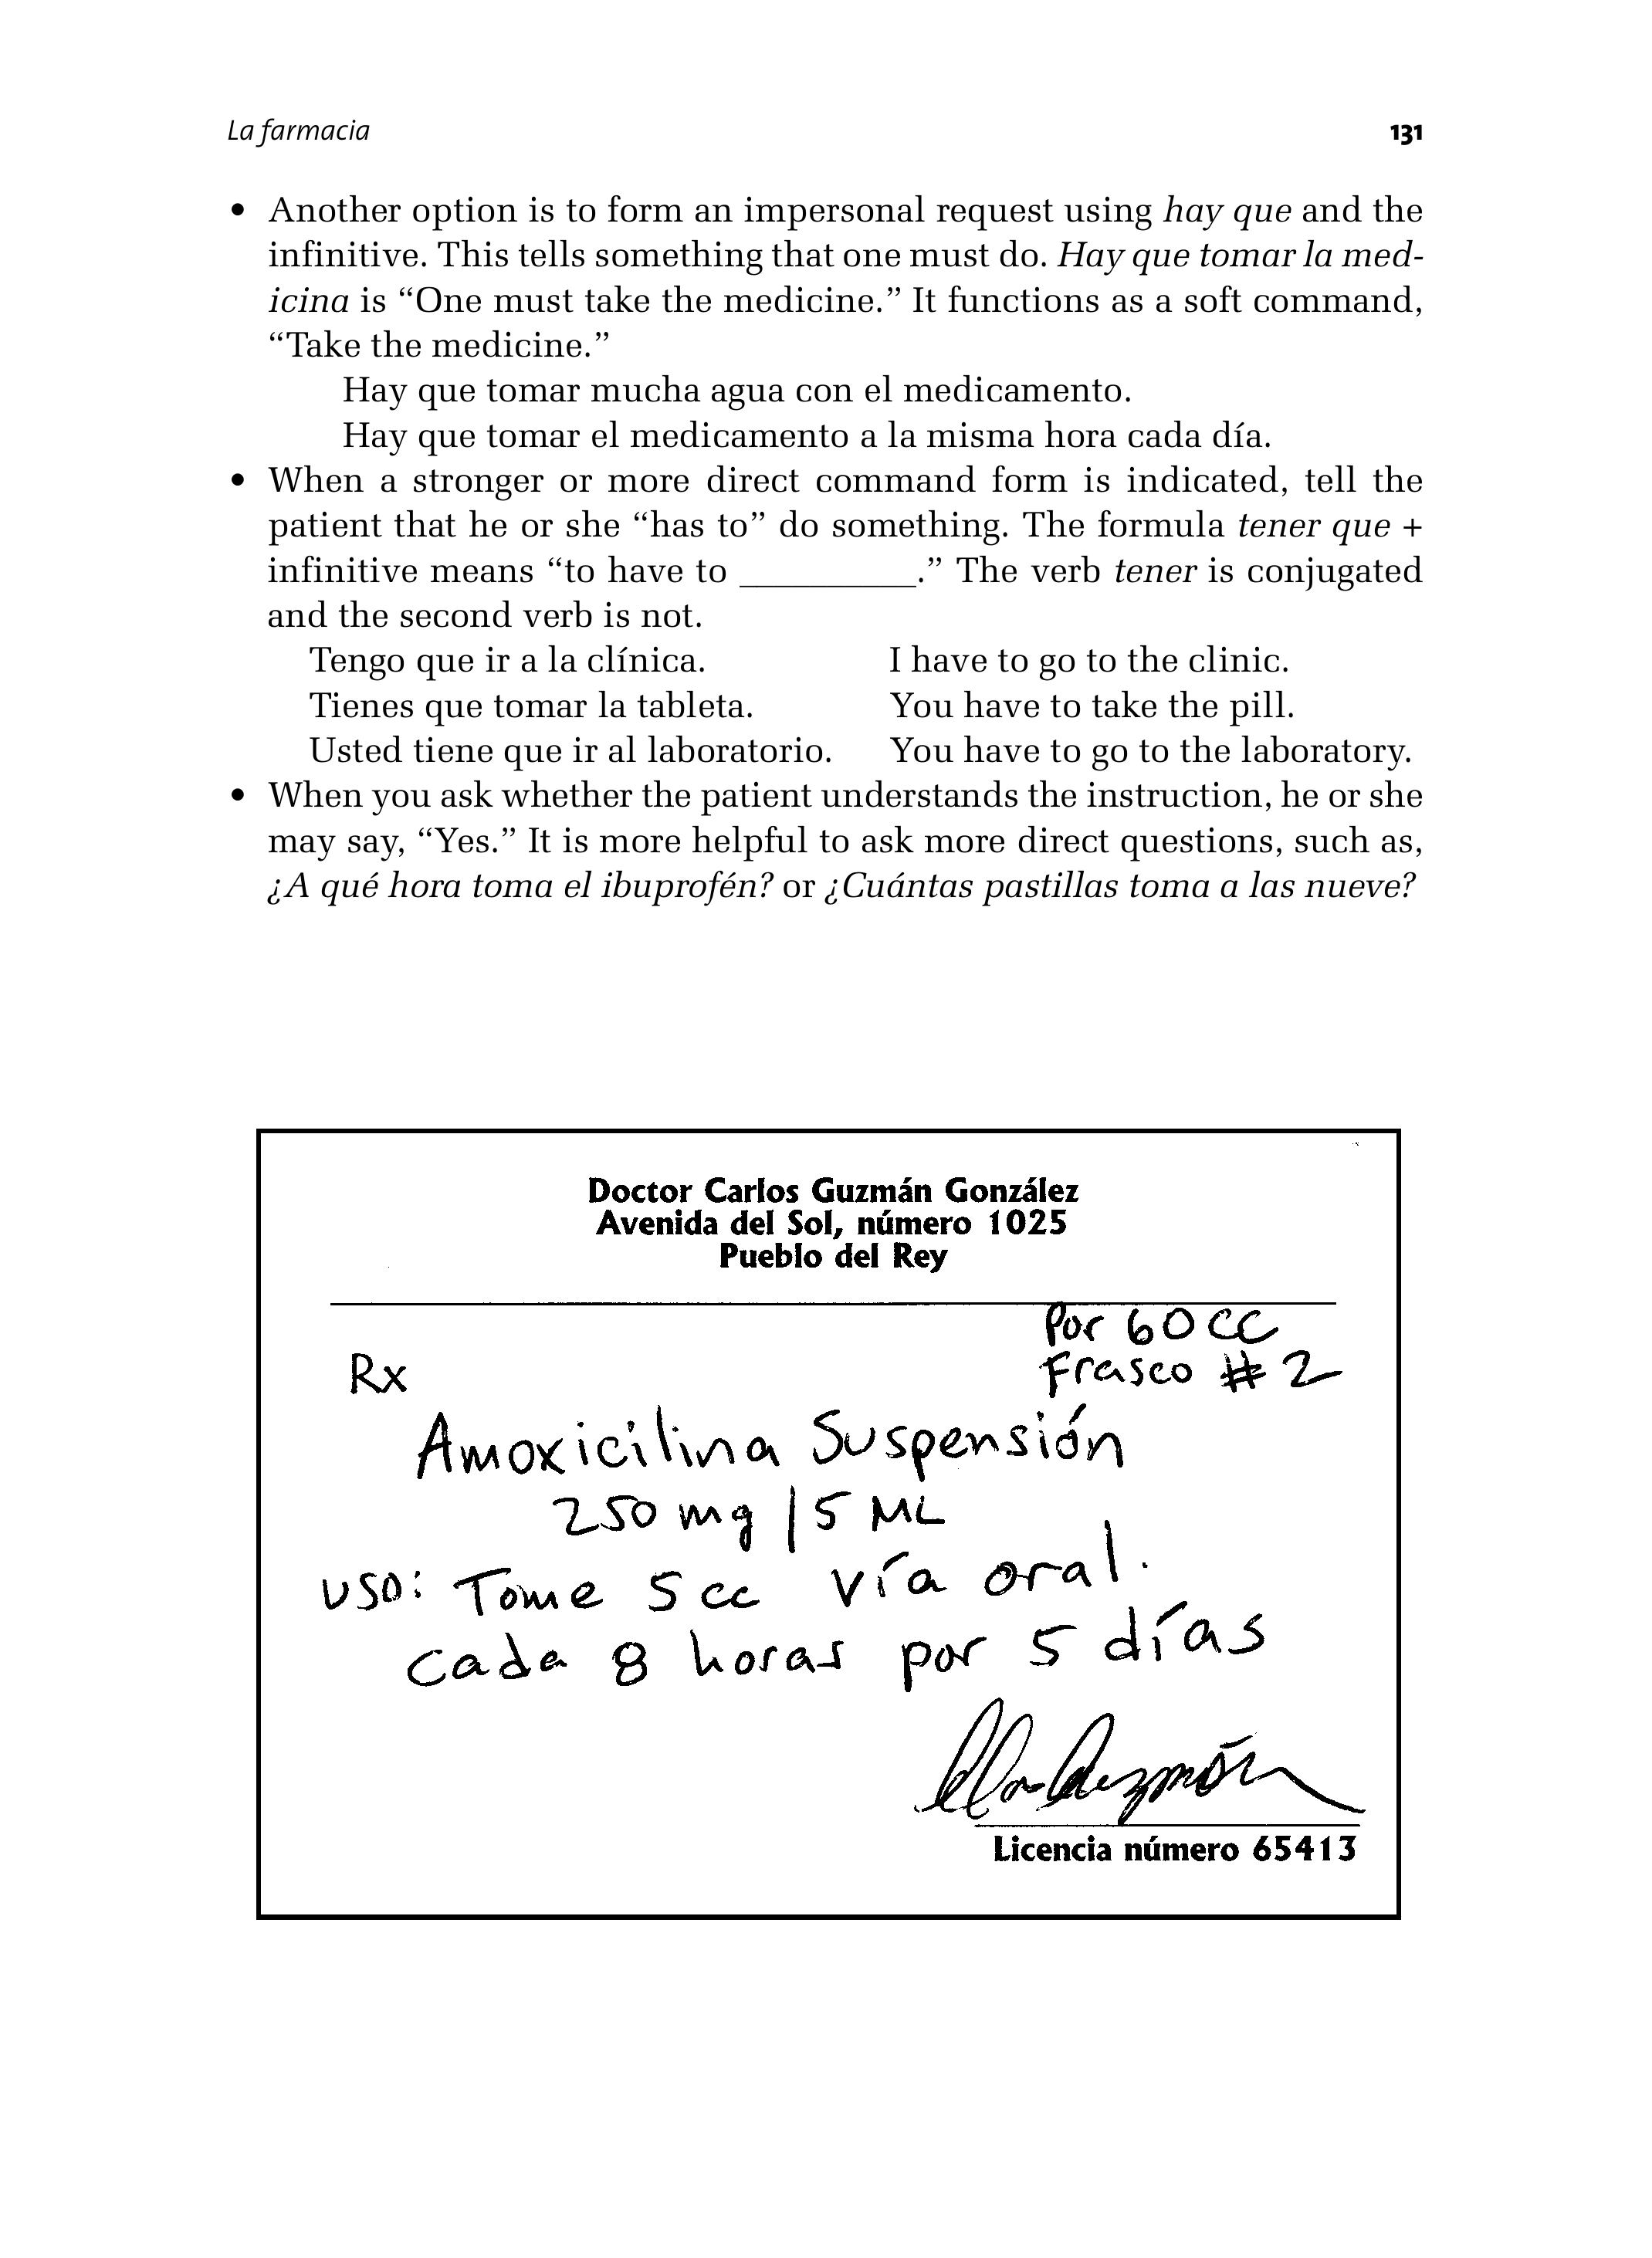 La farmacia 131
• Another option is to form an impersonal request using hay que and the
infinitive. This tells something that one must do. Hay que tomar la med-
icina is “One must take the medicine.” It functions as a soft command,
“Take the medicine.”
Hay que tomar mucha agua con el medicamento.
Hay que tomar el medicamento a la misma hora cada día.
• When a stronger or more direct command form is indicated, tell the
patient that he or she “has to” do something. The formula tener que +
infinitive means “to have to __________.” The verb tener is conjugated
and the second verb is not.
Tengo que ir a la clínica. I have to go to the clinic.
Tienes que tomar la tableta. You have to take the pill.
Usted tiene que ir al laboratorio. You have to go to the laboratory.
• When you ask whether the patient understands the instruction, he or she
may say, “Yes.” It is more helpful to ask more direct questions, such as,
¿A qué hora toma el ibuprofén? or ¿Cuántas pastillas toma a las nueve?
Doctor Carlos Guzmán González
Avenida del Sol, número 1025
Pueblo del Rey
Por 60 cc
Rx Frasco # 2
Amoxicilina Suspensión
250 mg | 5 ML
USO: Tome 5 cc vía oral.
cada 8 horas por 5 días
Guzmán
Licencia número 65413